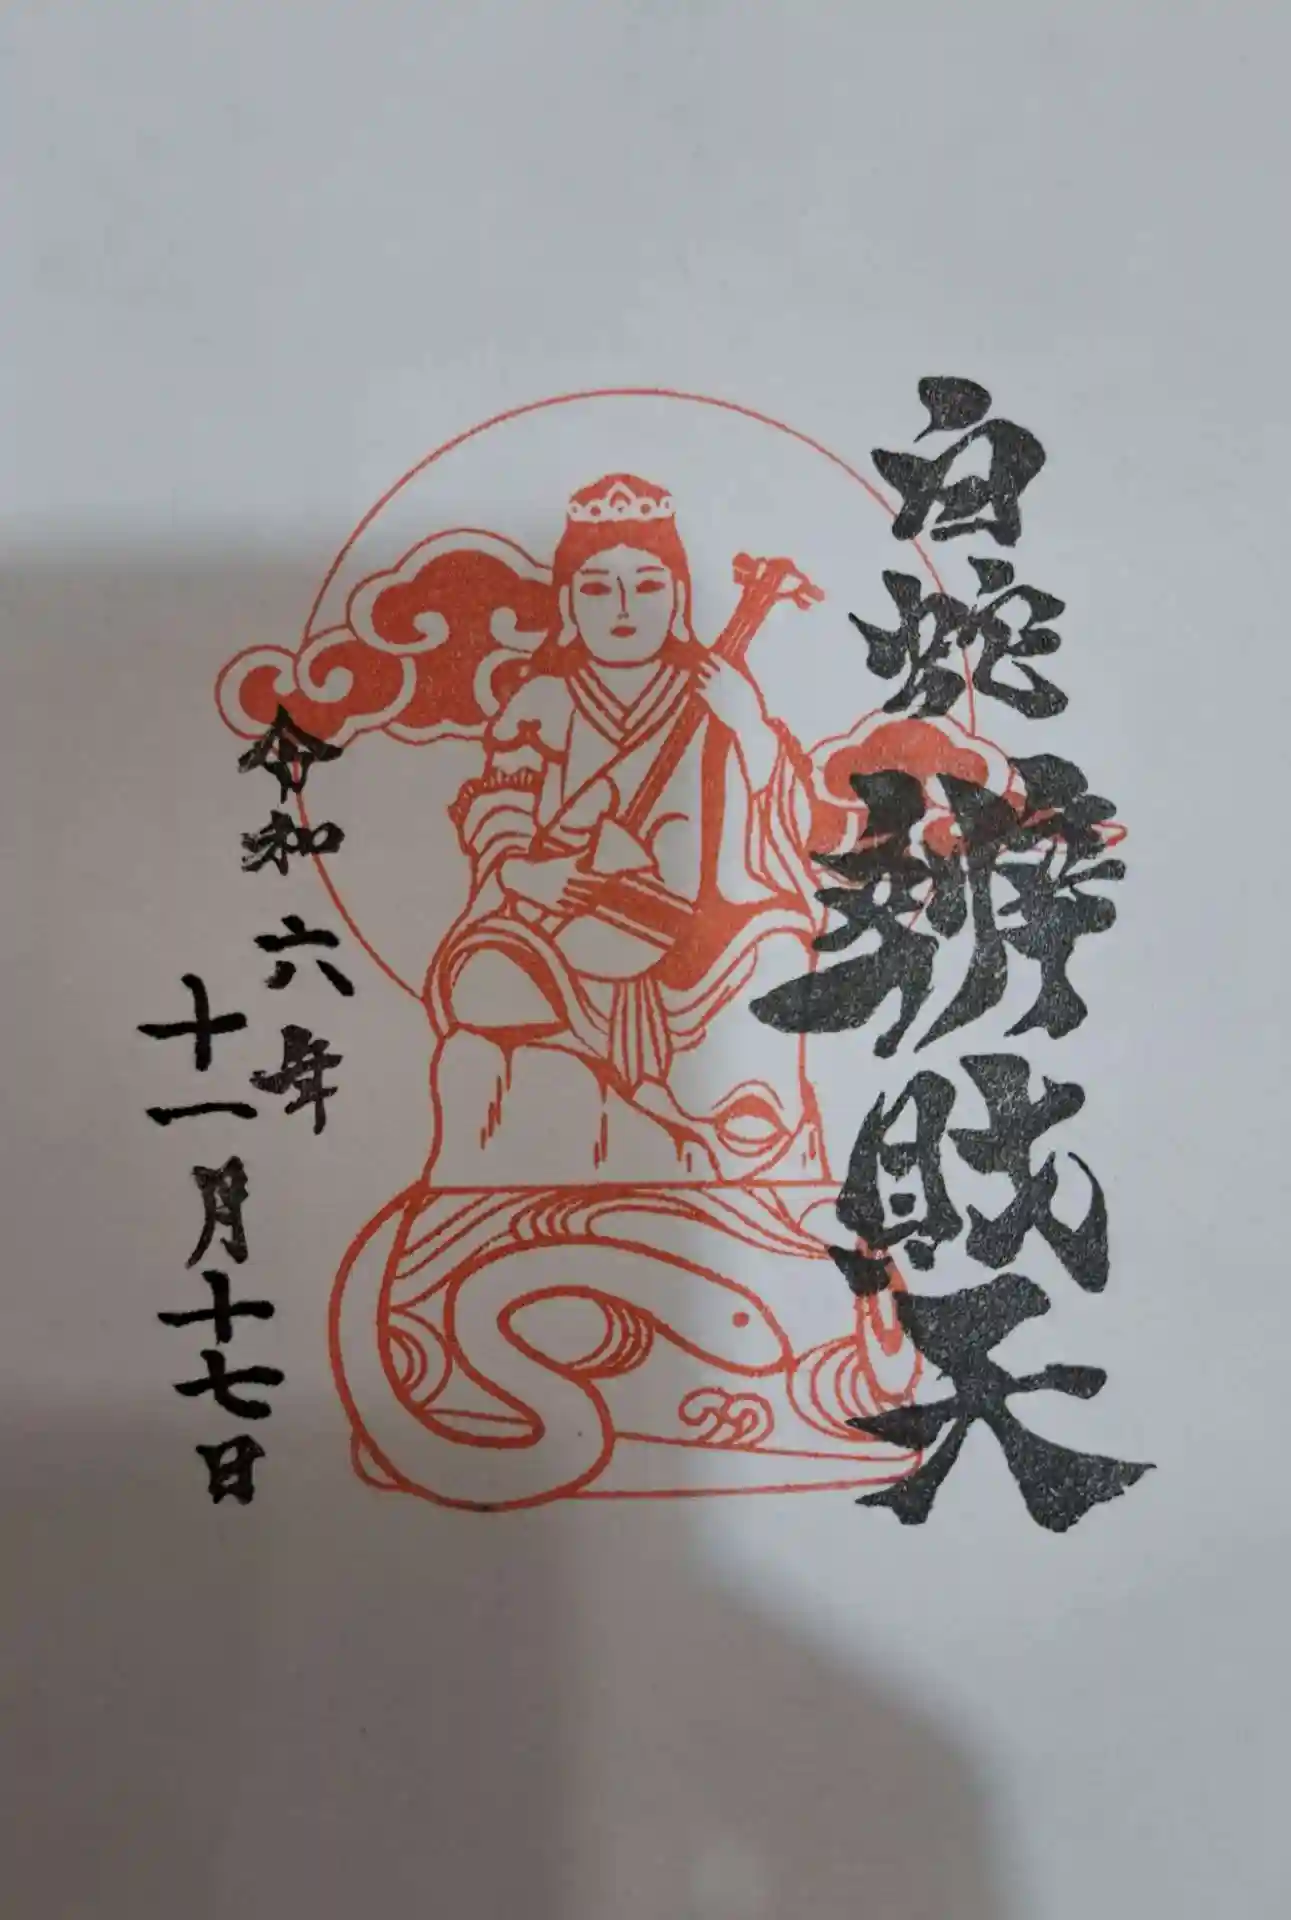 白蛇辨財天
令和六年
十一月十七日